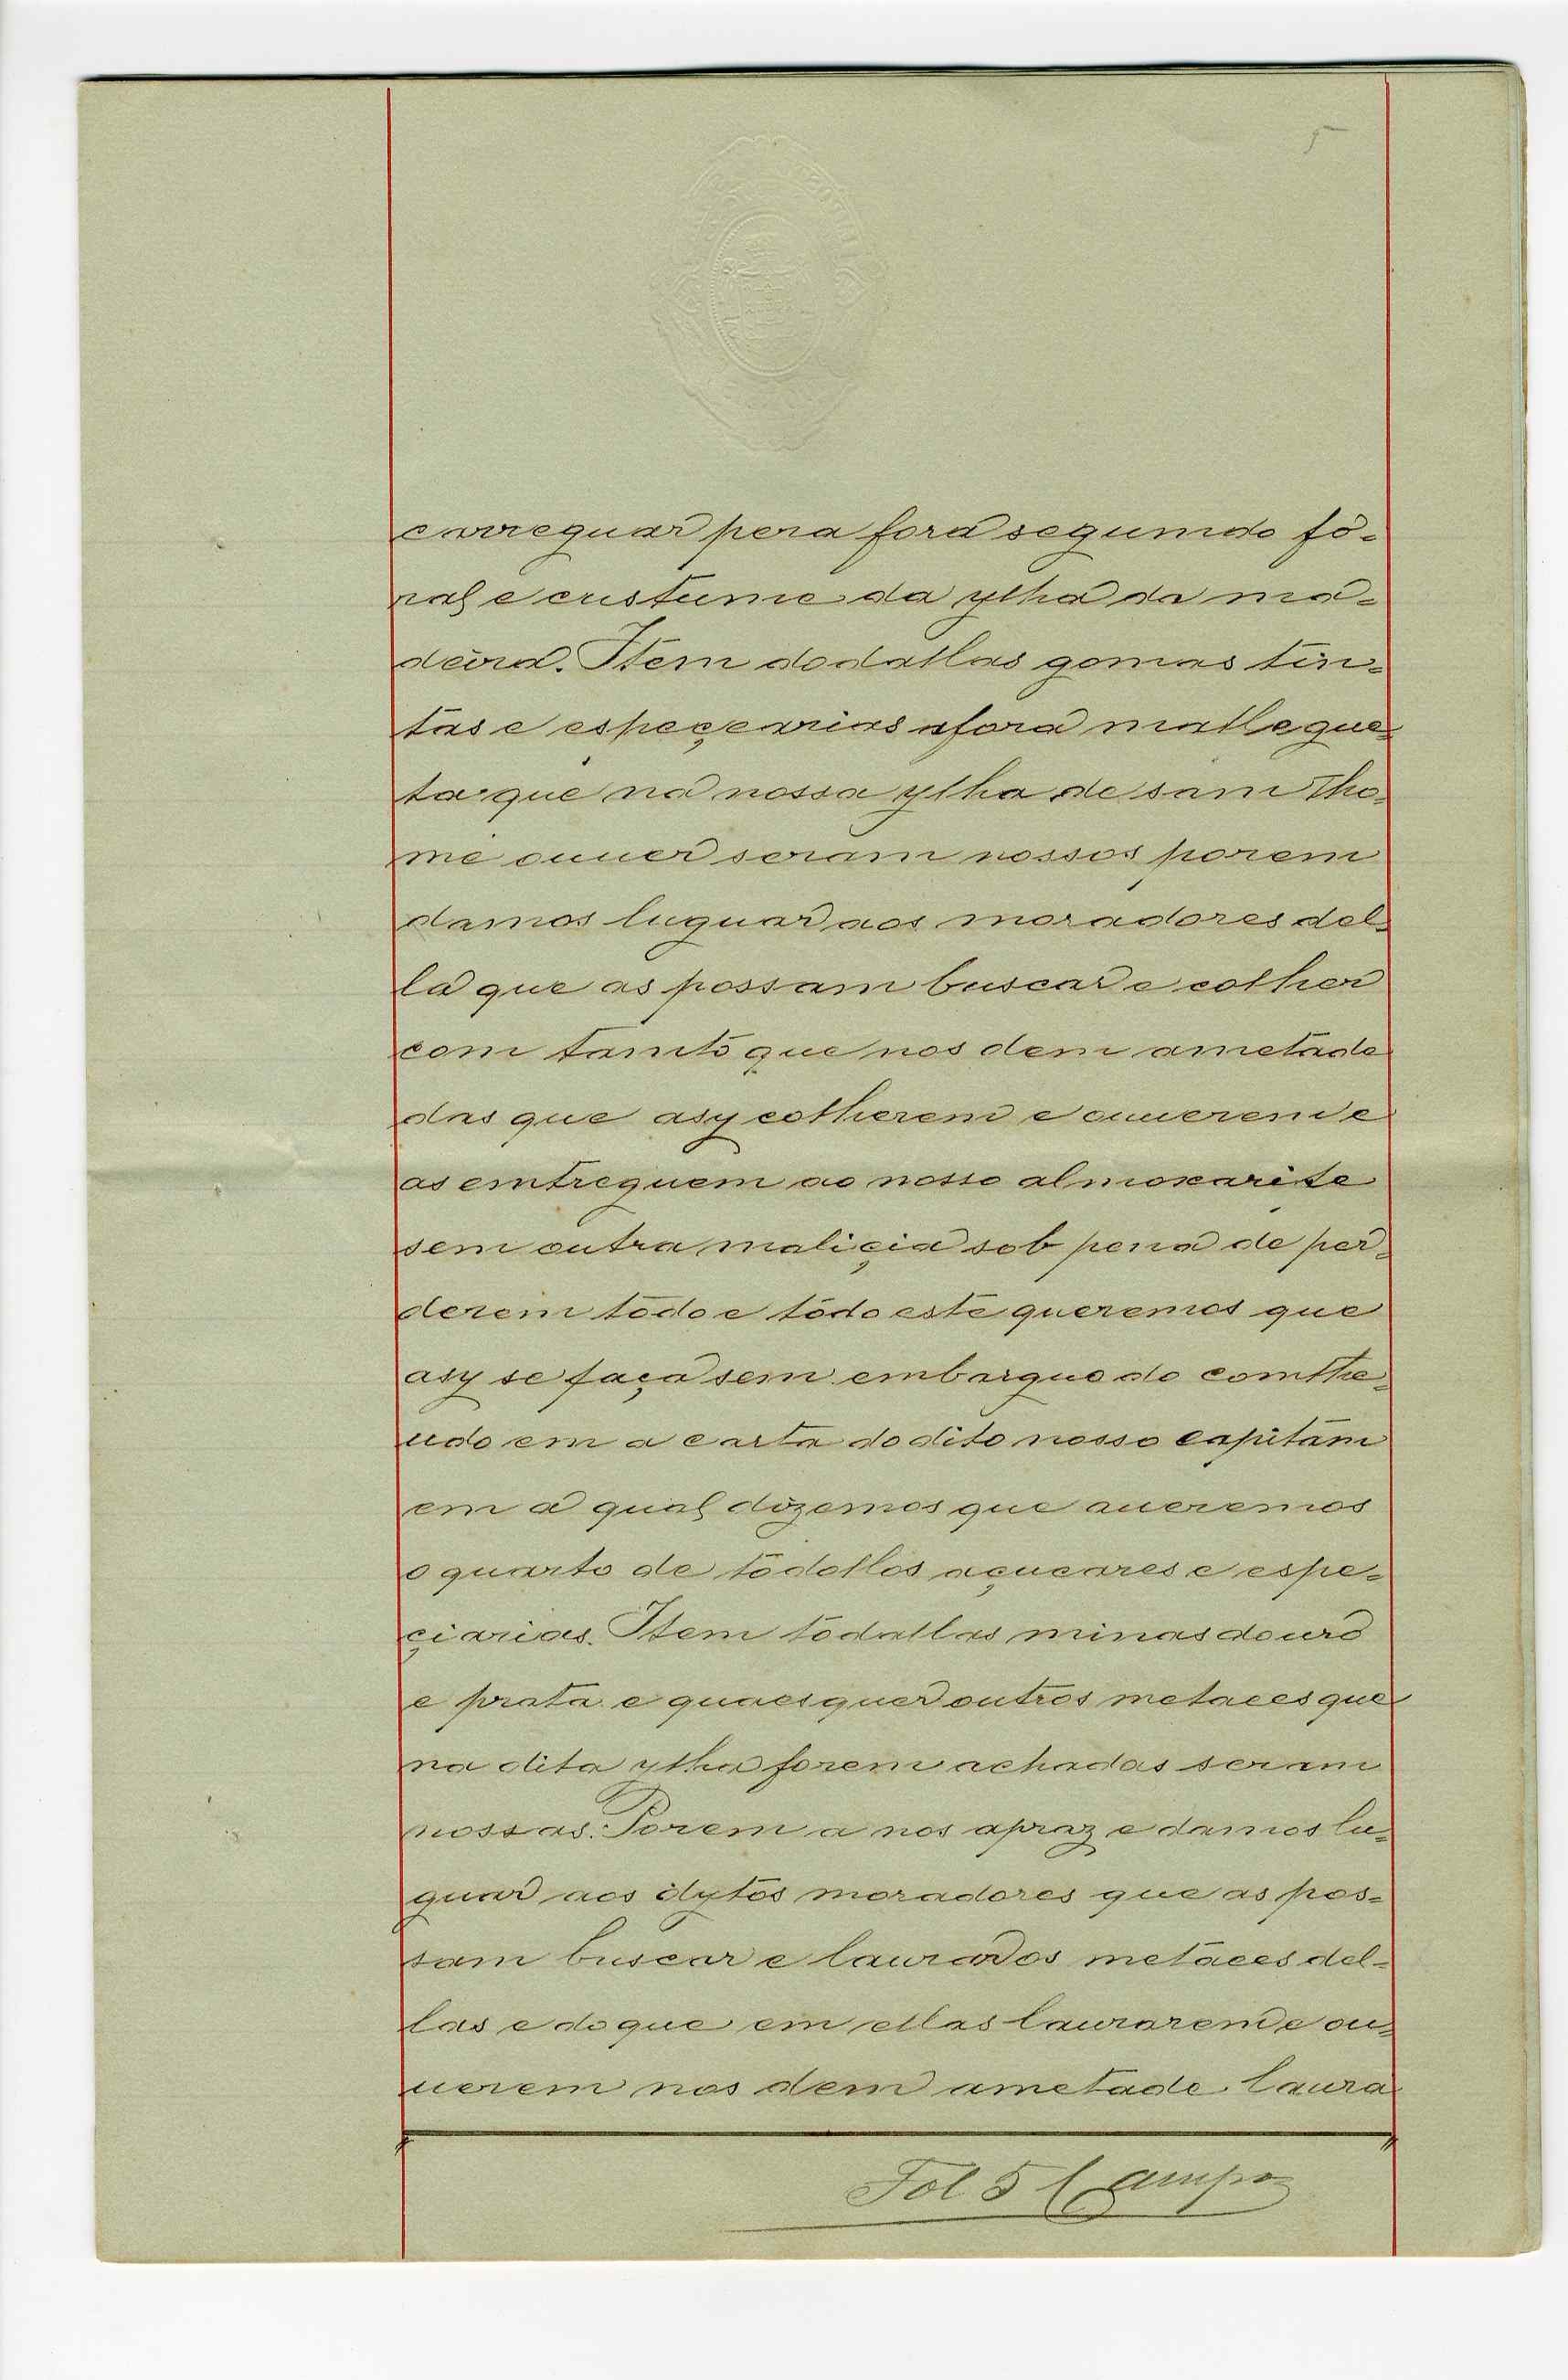 5
carreguar pera fora segumdo fo-
ral e custume da ylha da ma-
deira. Item dodallas gomas tin-
tas e espeçearias afora mallegue-
ta que na nossa ylha de sam Tho-
me ouuer seram nossos porem
damos luguar aos moradores del-
la que as possam buscar e colher
com tamto que nos dem ametade
das que asy colherem e ouuerem e
as emtreguem ao nosso almoxarife
sem outra maliçia sob pena de per-
derem todo e todo este queremos que
asy se faça sem embarguo do comthe-
udo em a carta do dito nosso capitam
em a qual dizemos que aueremos
o quarto de todollos açucares e espe-
çiarias. Item todallas minas douro
e prata e quaesquer outros metaees que
na dita ylha forem achadas seram
nossas. Porem a nos apraz e damos lu-
guar aos dytos moradores que as pos-
sam buscar e laurar os metaees del-
las e do que em ellas laurarem e ou-
uerem nos dem ametade laura
Fol 5 Campos